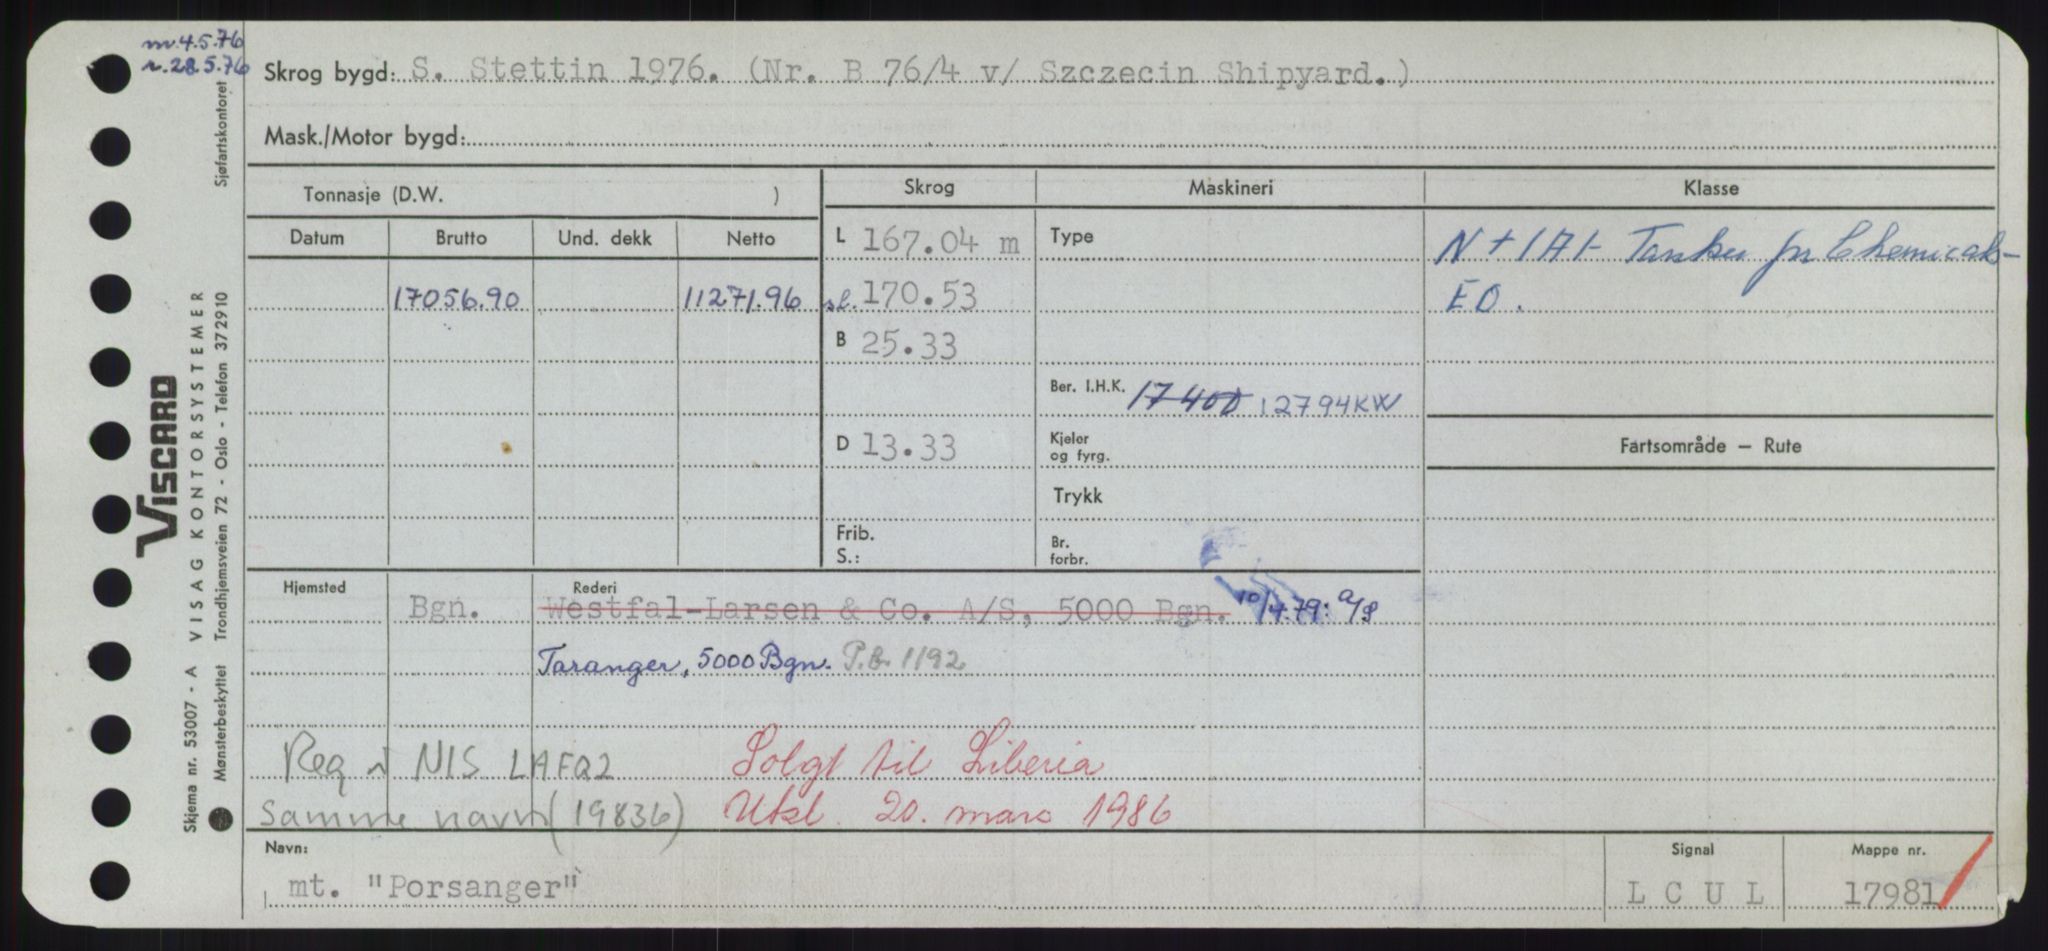 m. 4.5.76
r. 28.5.76
Skrog bygd: S. Stettin 1976. (Nr. B 76/4 v/ Szczecin Shipyard.)
Mask./Motor bygd:
Tonnasje (D.W. )
Skrog
Maskineri
Klasse
Datum Brutto Und. dekk Netto
L 167.04 m
Type
N + 1A1- Tanker for Chemicals-
17056.90 11271.96
sl. 170.53
EO.
B 25.33
Ber. I.H.K. 17400 12794KW
D 13.33
Kjeler
og fyrg.
Fartsområde — Rute
Trykk
Frib.
S.:
Br.
forbr.
Hjemsted
Rederi
Bgn. Westfal-Larsen & Co. A/S, 5000 Bgn. 10/4.79: A/S
Taranger, 5000 Bgn. P.b. 1192
Reg i NIS LAFQ2
Solgt til Liberia
samme navn (19836)
Utsl. 20. mars 1986
Navn:
Signal
Mappe nr.
mt. "Porsanger"
L C U L
17981
Skjema nr. 53007 - A VISAG KONTORSYSTEMER
VISCARD
Mønsterbeskyttet Trondhjemsveien 72 - Oslo - Telefon 372910
Sjøfartskontoret